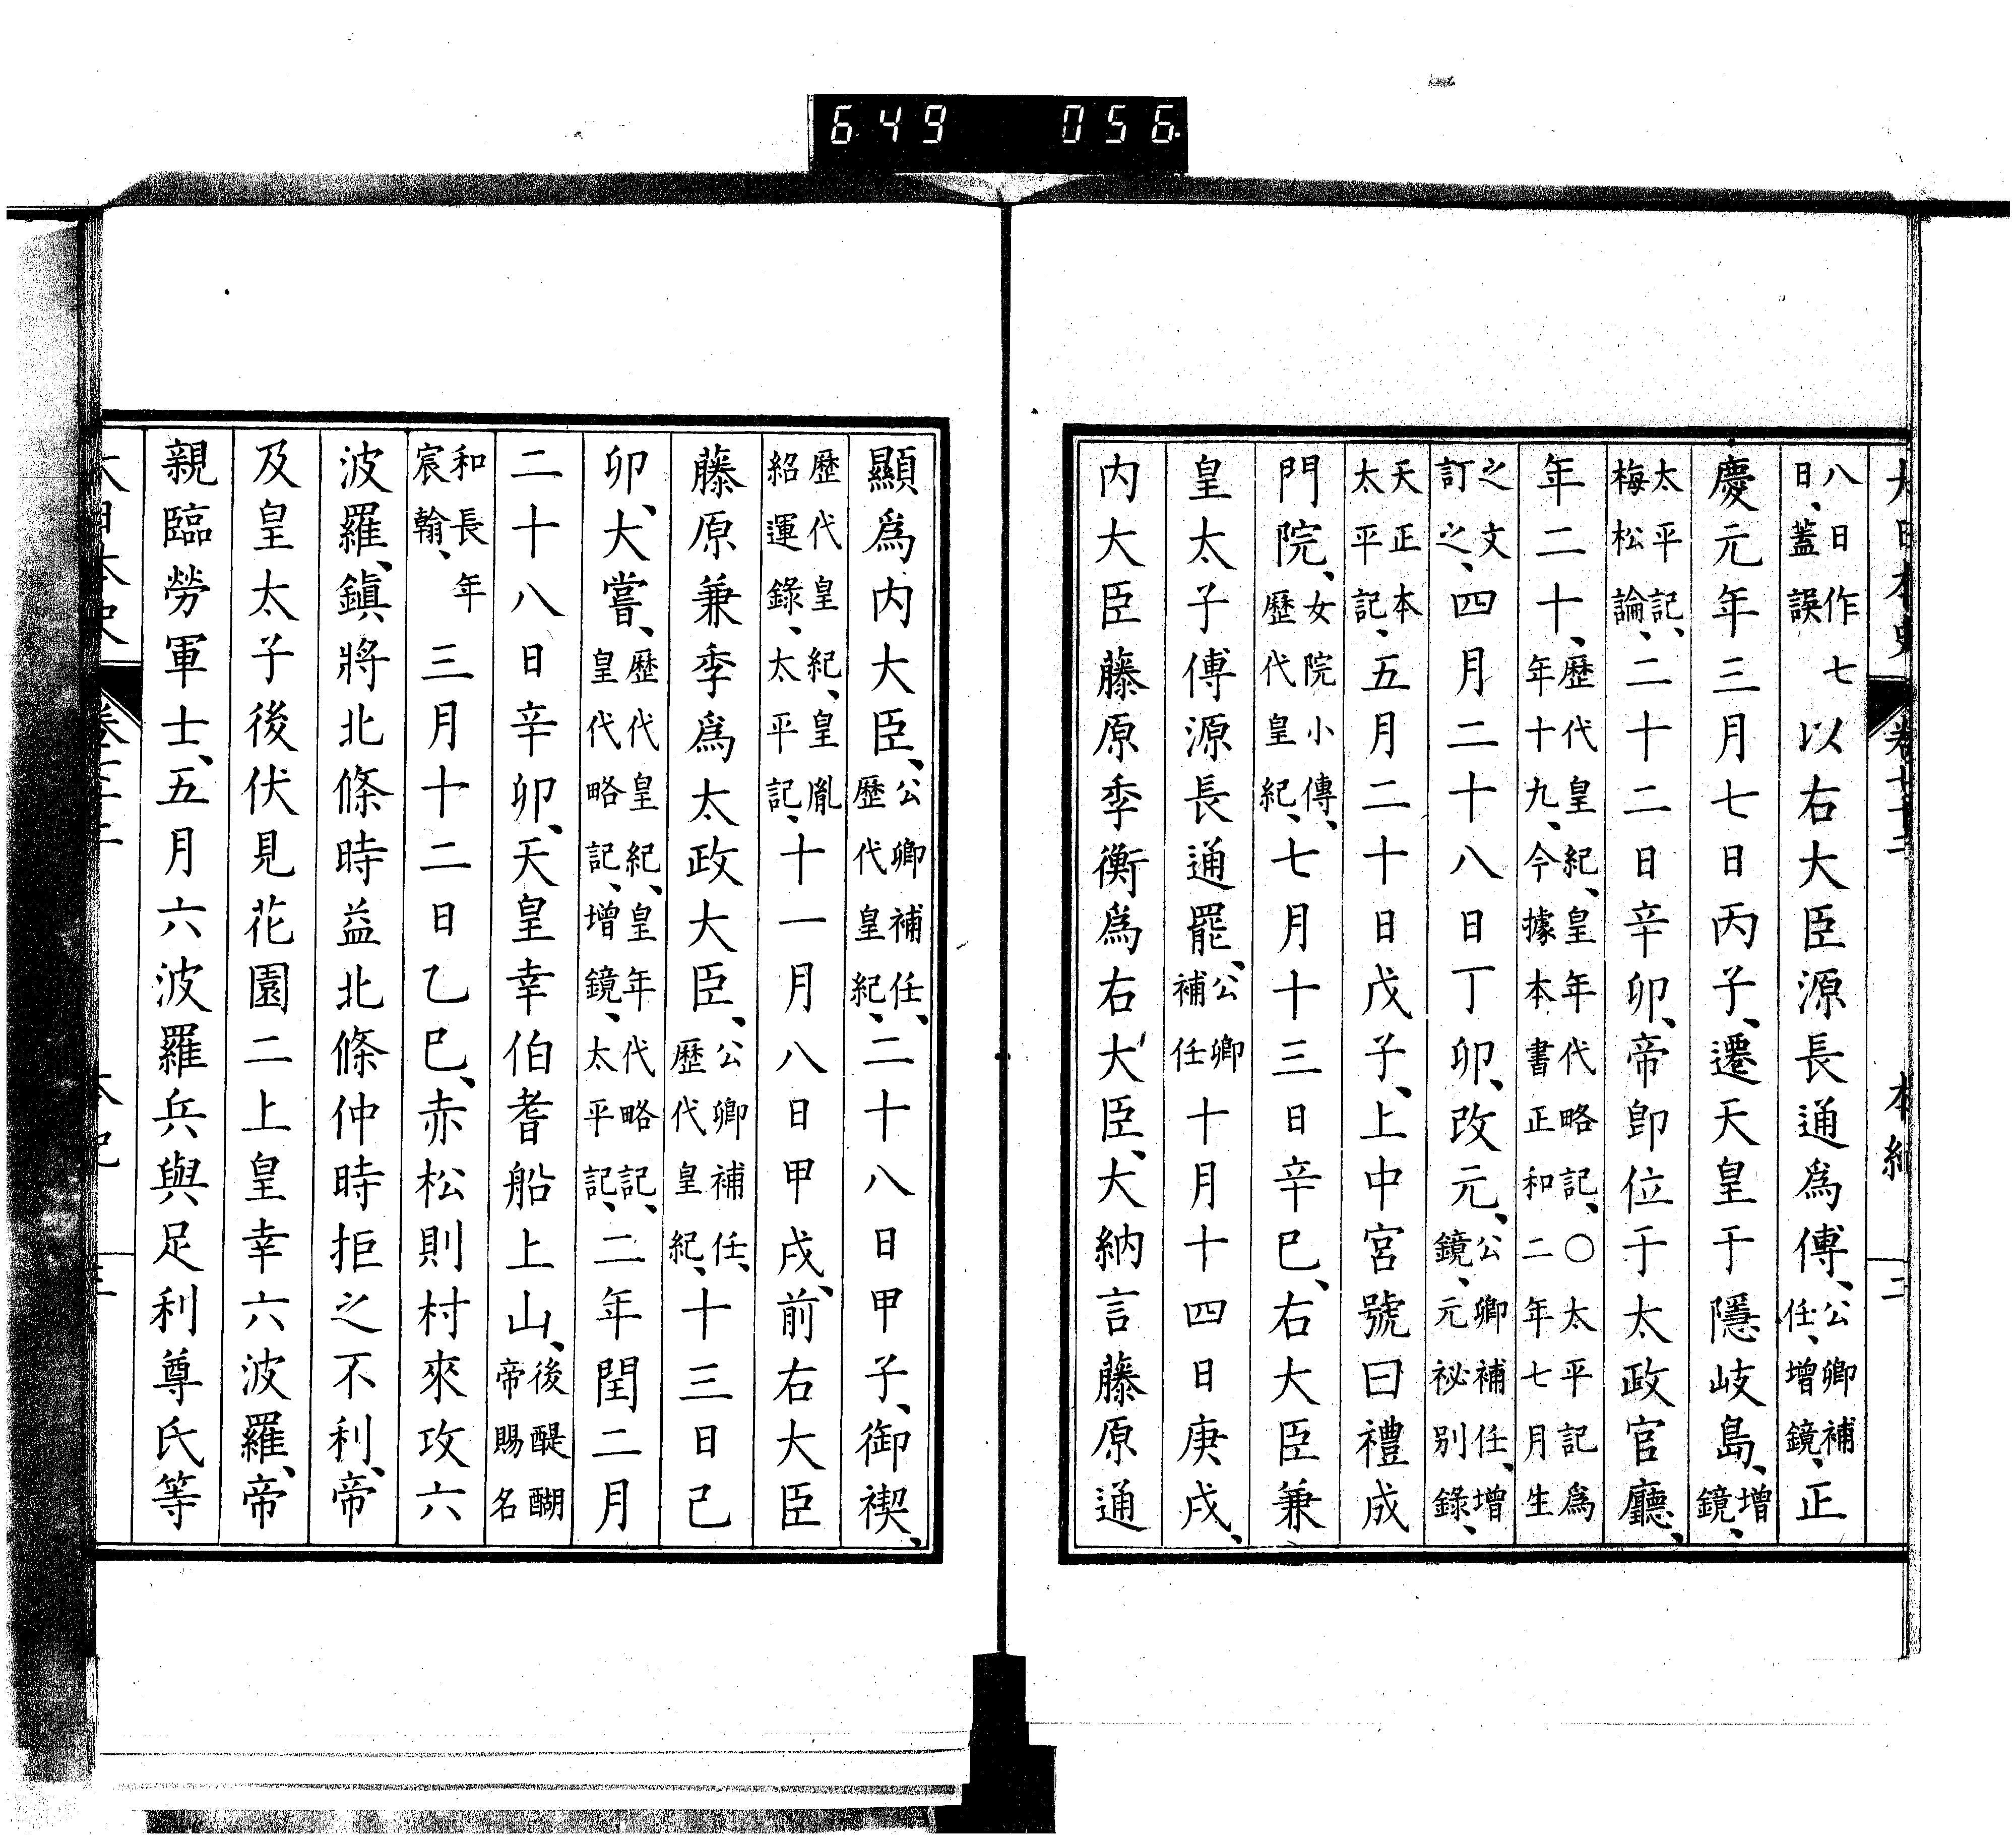 649 056
大日本史 卷七十二 本紀 二
八日作七日、蓋誤 以右大臣源長通爲傅、公卿補任、增鏡、正
慶元年三月七日丙子、遷天皇于隱岐島、增鏡、
太平記、梅松論、二十二日辛卯、帝卽位于太政官廳、
年二十、歷代皇紀、皇年代略記、〇太平記爲年十九、今據本書正和二年七月生
之文訂之、四月二十八日丁卯、改元、公卿補任、增鏡、元祕別錄、
天正本太平記、五月二十日戊子、上中宮號曰禮成
門院、女院小傳、歷代皇紀、七月十三日辛巳、右大臣兼
皇太子傅源長通罷、公卿補任 十月十四日庚戌、
内大臣藤原季衡爲右大臣、大納言藤原通
顯爲内大臣、公卿補任、歷代皇紀、二十八日甲子、御禊、
歷代皇紀、皇胤紹運錄、太平記、十一月八日甲戌、前右大臣
藤原兼季爲太政大臣、公卿補任、歷代皇紀、十三日己
卯、大嘗、歷代皇紀、皇年代略記、皇代略記、增鏡、太平記、二年閏二月
二十八日辛卯、天皇幸伯耆船上山、後醍醐帝賜名
和長年宸翰、三月十二日乙巳、赤松則村來攻六
波羅、鎭將北條時益北條仲時拒之不利、帝
及皇太子後伏見花園二上皇幸六波羅、帝
親臨勞軍士、五月六波羅兵與足利尊氏等